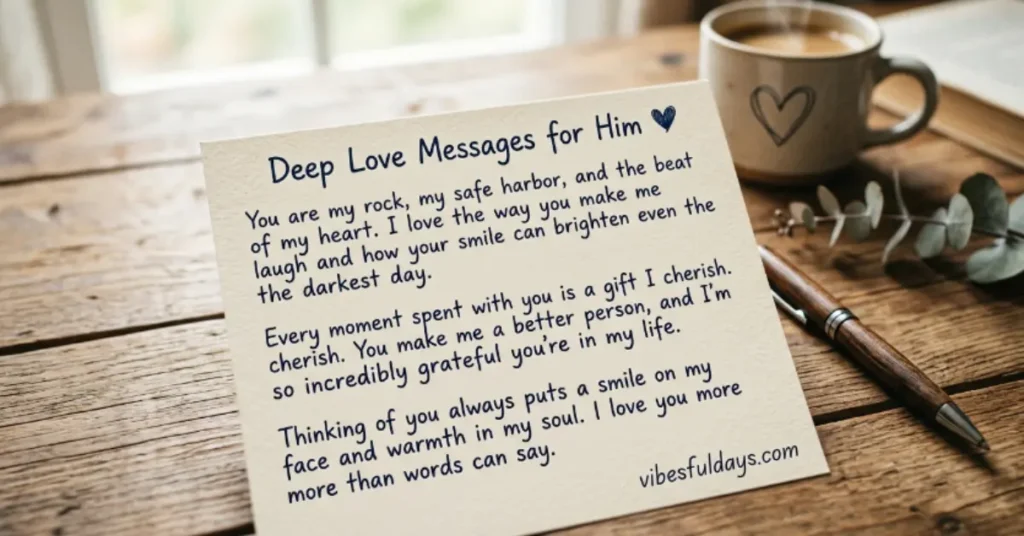 Deep Love Messages for Him
You are my rock, my safe harbor, and the beat
of my heart. I love the way you make me
laugh and how your smile can brighten even the
the darkest day.
Every moment spent with you is a gift I cherish.
cherish. You make me a better person, and I'm
so incredibly grateful you're in my life.
Thinking of you always puts a smile on my
face and warmth in my soul. I love you more
more than words can say.
vibesfuldays.com